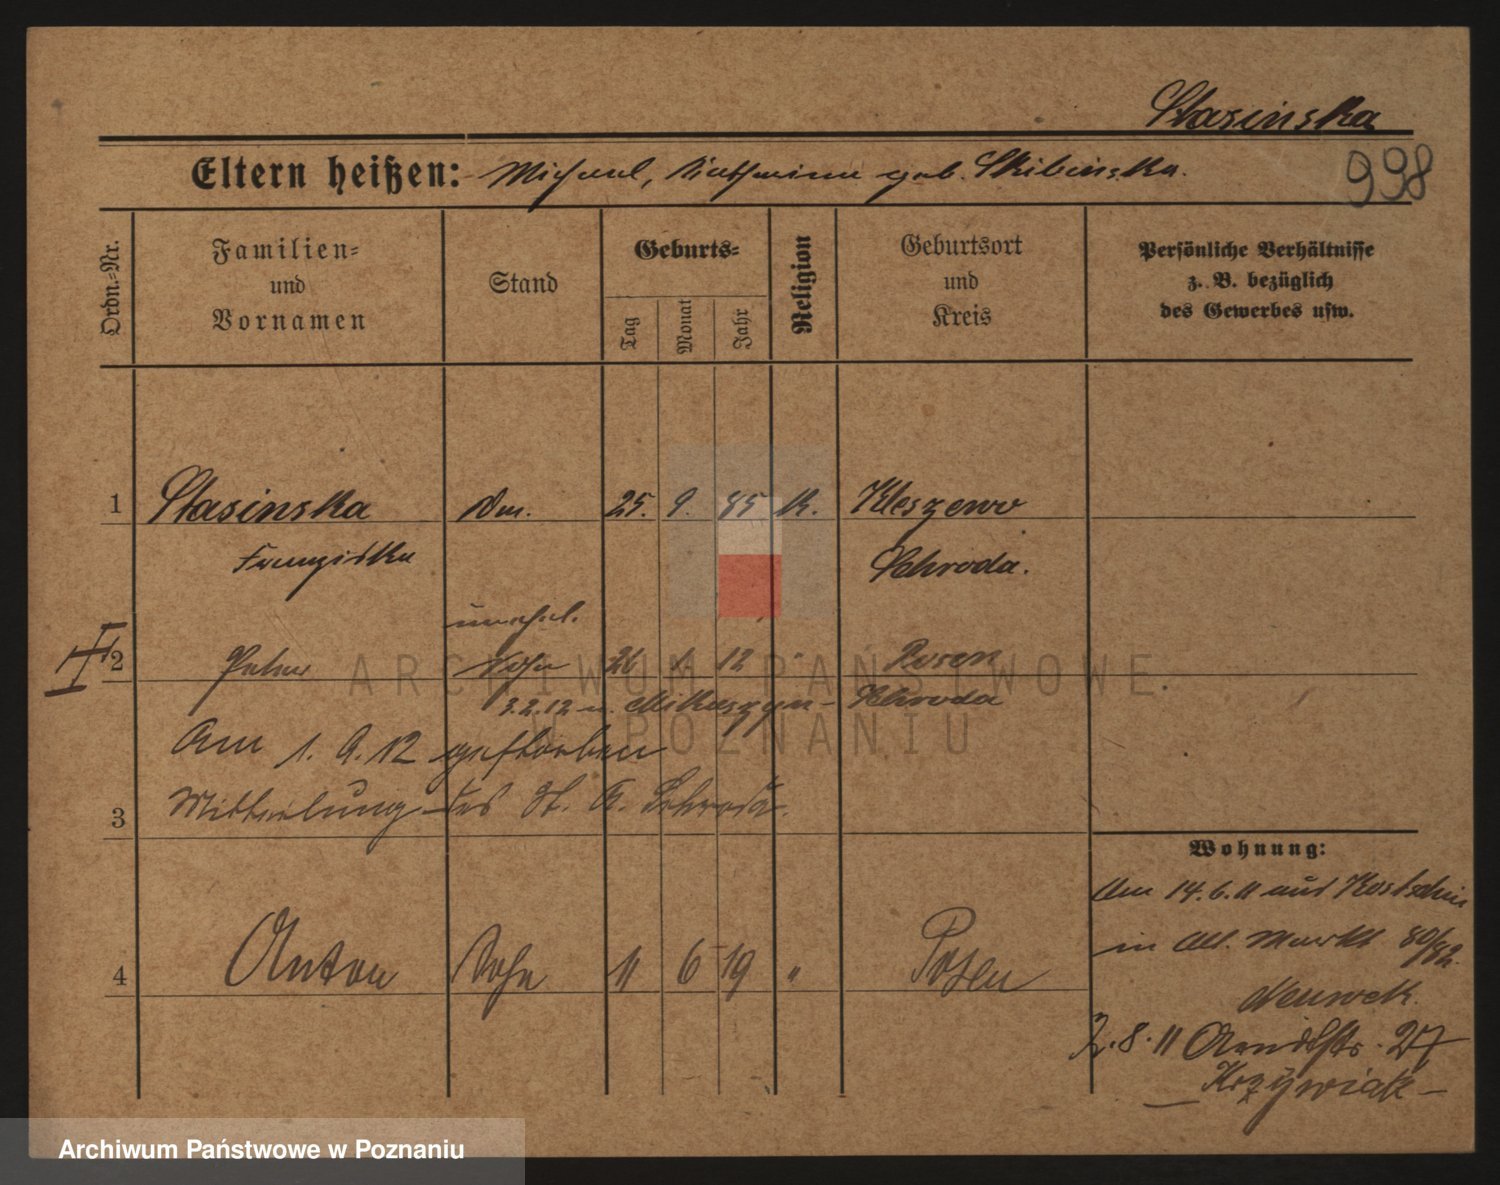 Stasinska
Eltern heißen: Michael, Katharina geb. Skibinska.
998
Ordn.-Nr.
Familien-
und
Vornamen
Stand
Geburts-
Tag
Monat
Jahr
Religion
Geburtsort
und
Kreis
Persönliche Verhältnisse
z. B. bezüglich
des Gewerbes usw.
1 Stasinska 25. 9. 85 k. Kleszewo
Franziska Schroda.
unehel.
2 Peter Sohn 26 1. 12 " Posen
3.2.12 n. Mikuszyn- Schroda
Am 1. 9. 12 gestorben
3 Mitteilung des St. A. Schroda.
4 Anton Sohn 11 6 19 " Posen
Wohnung:
Am 14.6.11 aus Kostschin
in Alt. Markt 80/82.
8. 11 Arndtstr. 27
Krzywiak
ARCHIWUM PAŃSTWOWE
W POZNANIU
Archiwum Państwowe w Poznaniu